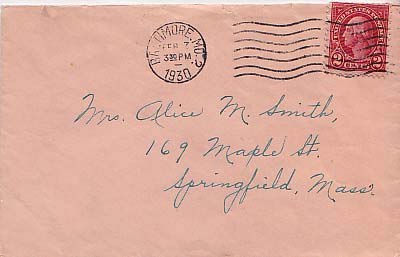 BALTIMORE, MD. 2
FEB 7
3 30 PM
1930
UNITED STATES POSTAGE
2 CENTS 2
Mrs. Alice M. Smith,
169 Maple St.
Springfield, Mass.